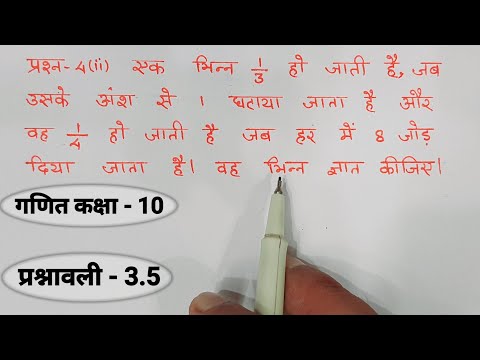 प्रश्न-4(ii) एक भिन्न 1/3 हो जाती है, जब
उसके अंश से 1 घटाया जाता है और
वह 1/4 हो जाती है जब हर में 8 जोड़
दिया जाता है। वह भिन्न ज्ञात कीजिए।
गणित कक्षा - 10
प्रश्नावली - 3.5